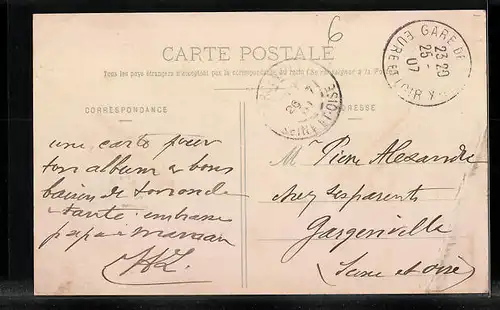 6
CARTE POSTALE
Tous les pays étrangers n'acceptent pas la correspondance au recto (Se renseigner à la Poste)
CORRESPONDANCE
ADRESSE
GARE DE
23 20
25 -
07
EURE ET LOIR
SEINE ET OISE
une carte pour
ton album & bons
baisers de
tante embrasse
papa & maman
M Pierre Alexandre
chez ses parents
Gargenville
(Seine et Oise)